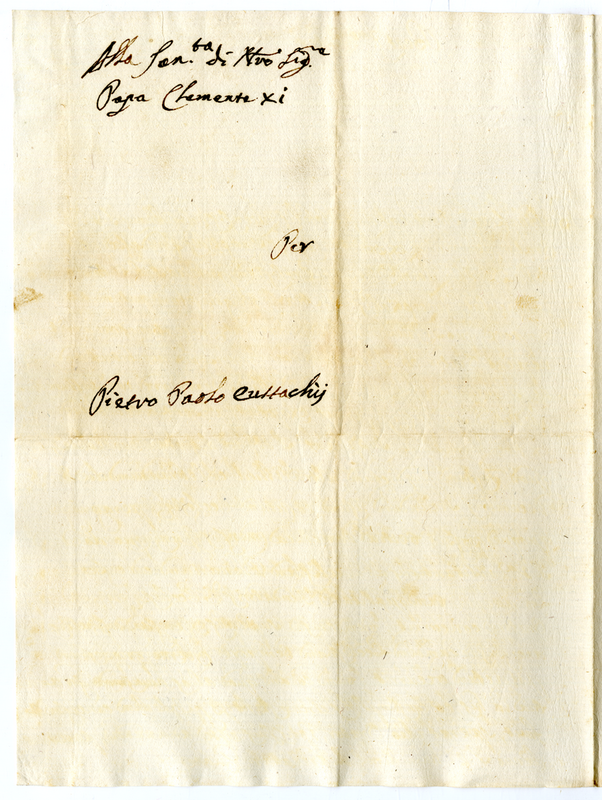 Alla San.ta di Nro Sig.re
Papa Clemente xi
Per
Pietro Paolo Eustachij